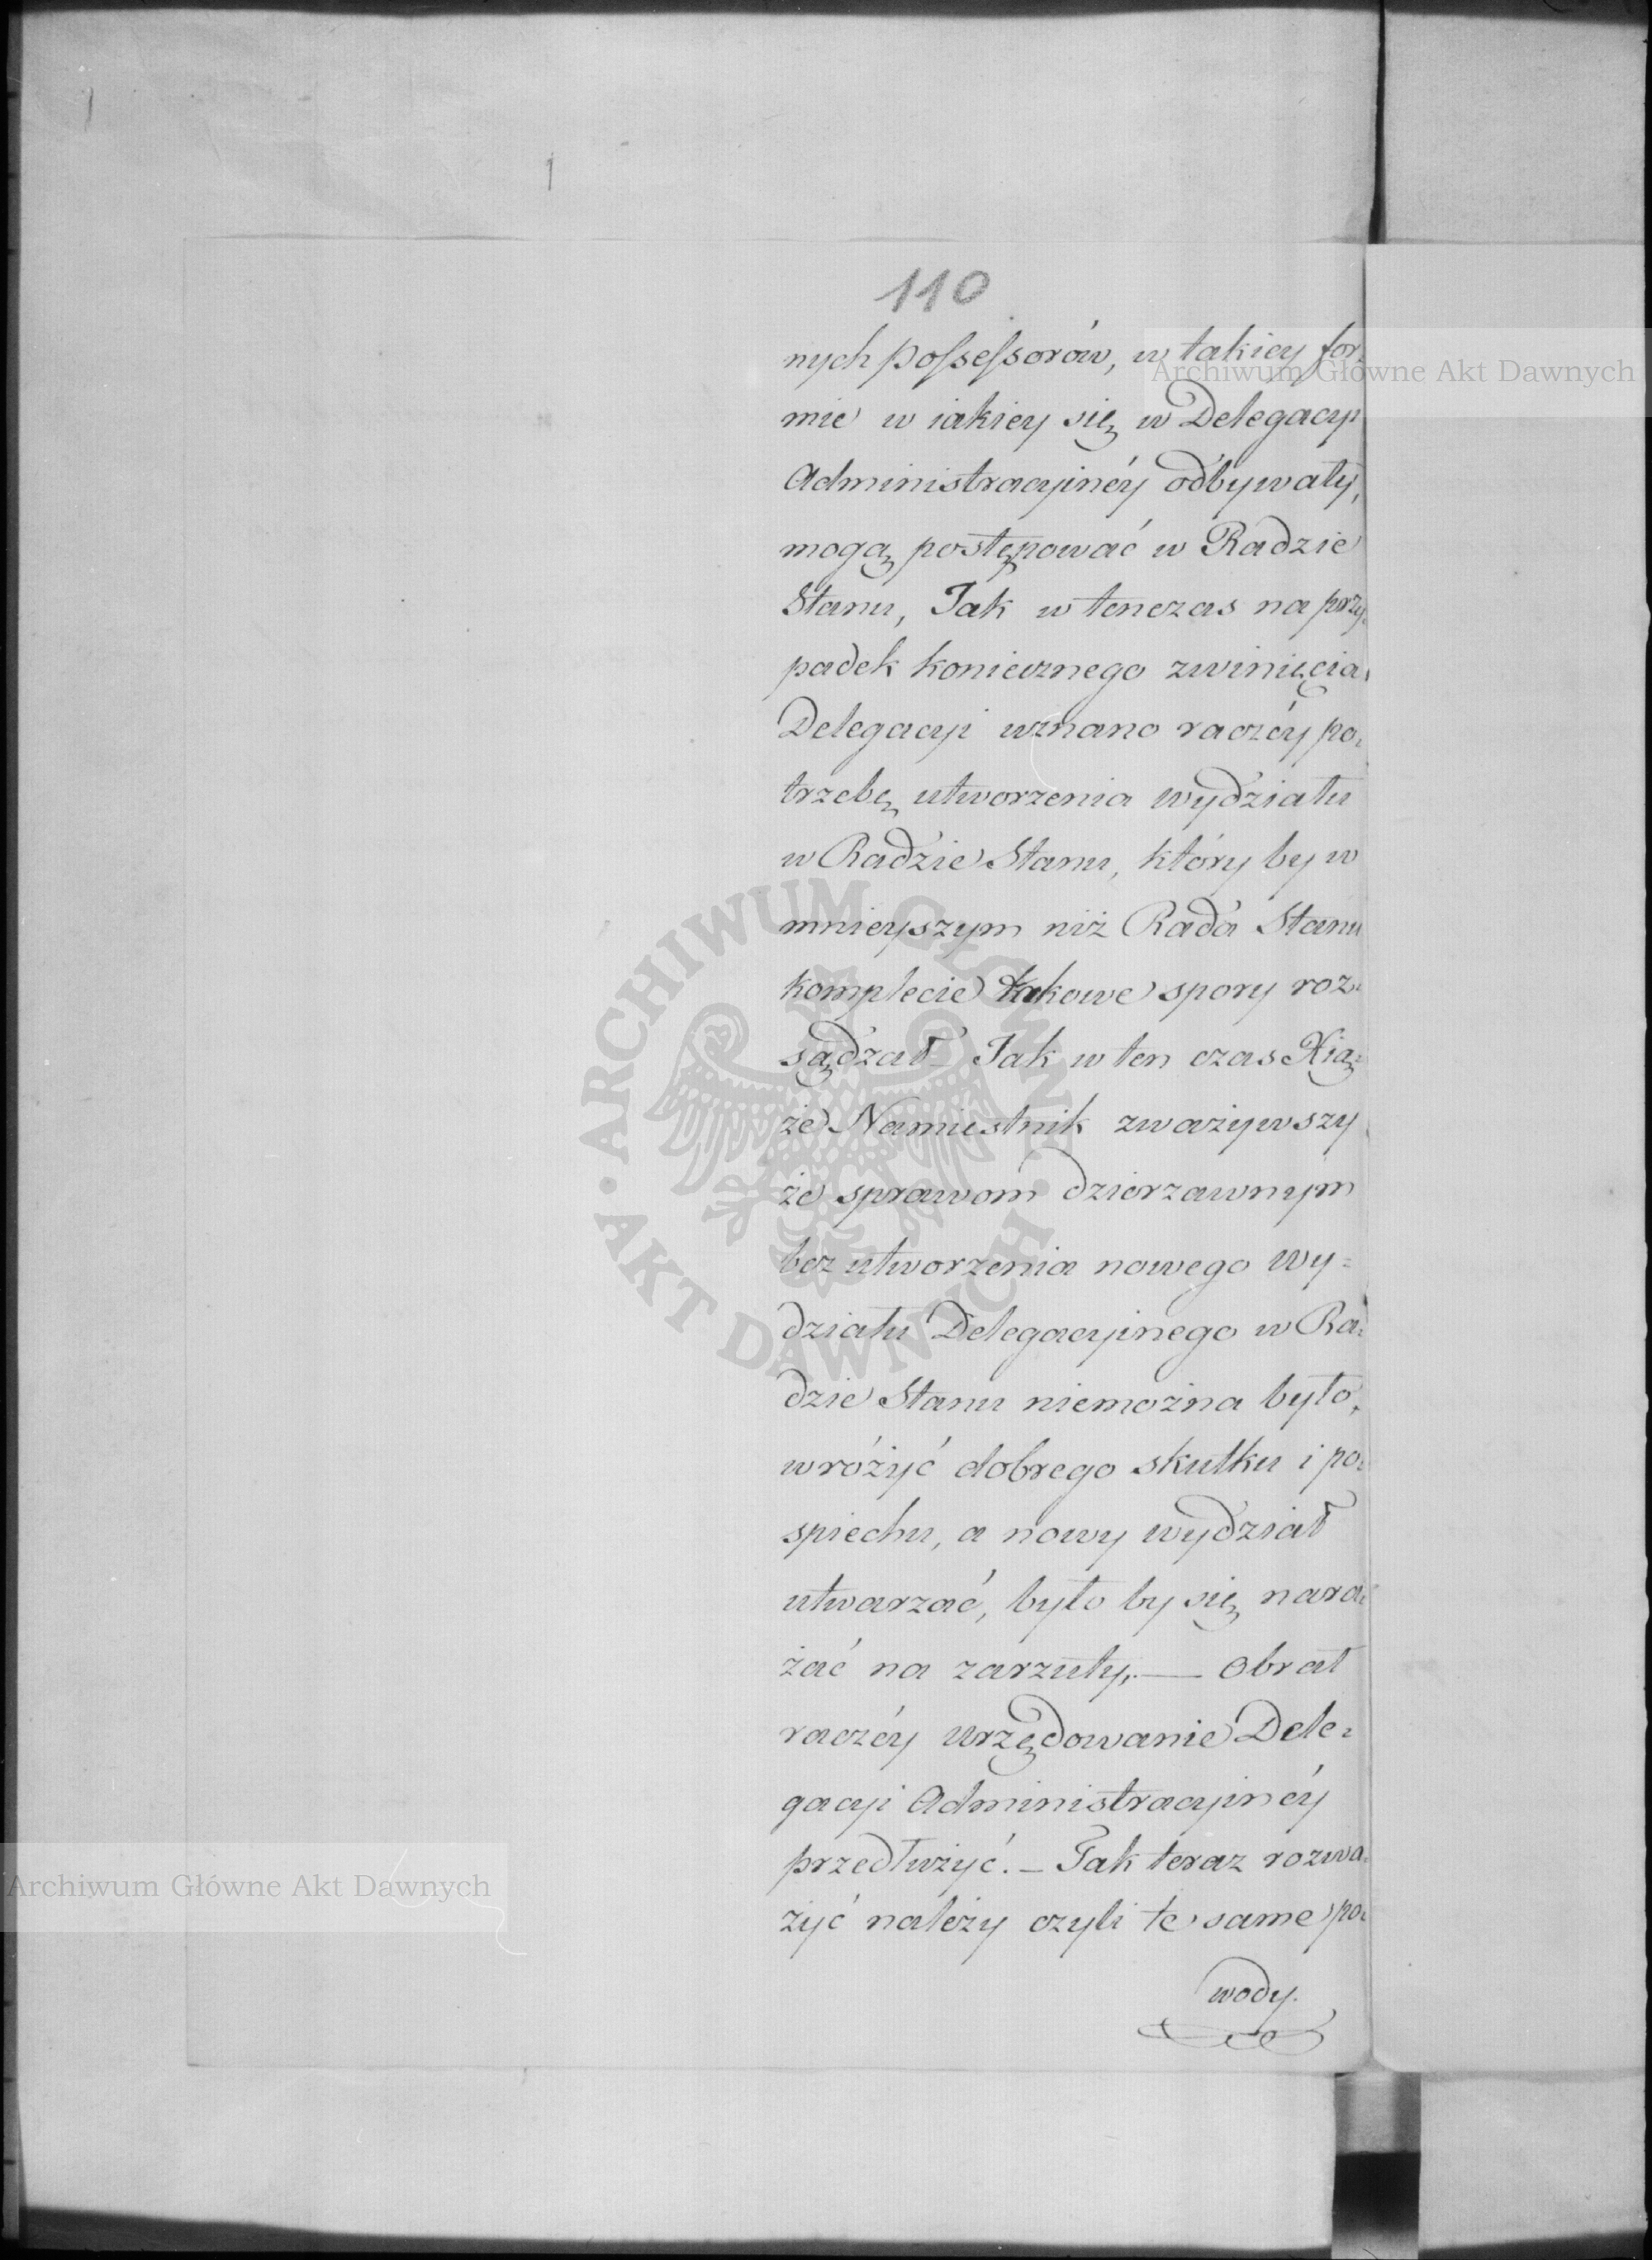 110
nych possessorów, w takiey for=
mie w iakiey się w Delegacyi
Administracyinéy odbywały,
mogą postępować w Radzie
Stanu, Jak w tenczas na przy=
padek koniecznego zwinięcia
Delegacyi uznano raczéy po=
trzebę utworzenia wydziału
w Radzie Stanu, który by w
mnieyszym niż Rada Stanu
komplecie takowe spory roz=
sądzał – Jak w ten czas Xią=
że Namiestnik zważywszy
że sprawom dzierzawnym
bez utworzenia nowego wy=
działu Delegacyinego w Ra=
dzie Stanu niemożna było,
wróżyć dobrego skutku i po=
spiechu, a nowy wydział
utwarzać, było by się nara=
żać na zarzuty, — Obrał
raczéy urzędowanie Dele=
gacyi Administracyinéy
przedłużyć. – Tak teraz rozwa=
żyć należy czyli te same po=
wody.
Archiwum Główne Akt Dawnych
ARCHIWUM GŁÓWNE · AKT DAWNYCH ·
Archiwum Główne Akt Dawnych